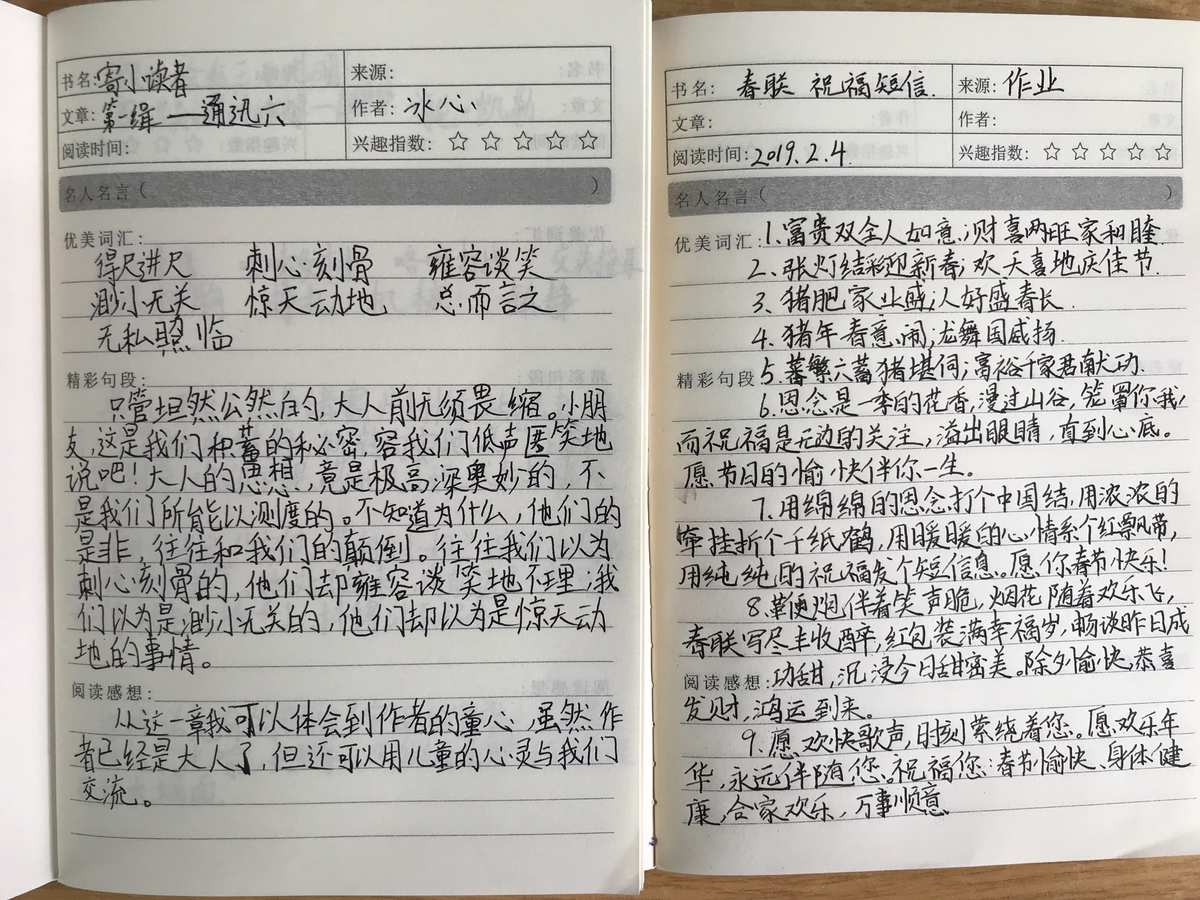 书名:寄小读者
来源:
文章:第一辑——通迅六
作者:冰心
阅读时间:
兴趣指数:☆☆☆☆☆
名人名言( )
优美词汇:
得尺进尺 刺心刻骨 雍容谈笑
渺小无关 惊天动地 总而言之
无私照临
精彩句段:
只管坦然公然的,大人前无须畏缩。小朋
友,这是我们积蓄的秘密,容我们低声匿笑地
说吧!大人的思想、竟是极高深奥妙的,不
是我们所能以测度的。不知道为什么,他们的
是非,往往和我们的颠倒。往往我们以为
刺心刻骨的,他们却雍容谈笑地不理;我
们以为是渺小无关的,他们却以为是惊天动
地的事情。
阅读感想:
从这一章我可以体会到作者的童心,虽然作
者已经是大人了,但还可以用儿童的心灵与我们
交流。
书名: 春联 祝福短信.
来源:作业
文章:
作者:
阅读时间:2019.2.4.
兴趣指数:☆☆☆☆☆
名人名言( )
优美词汇:1.富贵双全人如意;财喜两旺家和
2.张灯结彩迎新春;欢天喜地庆佳节.
3.猪肥家业盛;人好盛春长.
4.猪年春意闹;龙舞国威扬.
精彩句段5.蕃繁六蓄猪堪伺;富裕千家君献功.
6.思念是一季的花香,漫过山谷,笼罩你我,
而祝福是无边的关注,溢出眼睛,直到心底。
愿节日的愉快伴你一生。
7.用绵绵的思念打个中国结,用浓浓的
牵挂折个千纸鹤,用暖暖的心情系个红飘带,
用纯纯的祝福发个短信息。愿你春节快乐!
8.鞭炮伴着笑声脆,烟花随着欢乐飞,
春联写尽丰收醉,红包装满幸福岁,畅谈昨日成
阅读感想:功甜,沉浸今日甜密美。除夕愉快,恭喜
发财,鸿运到来。
9.愿欢快歌声,时刻萦绕着您。愿欢乐年
华,永远伴随您。祝福您:春节愉快、身体健
康,合家欢乐,万事顺意